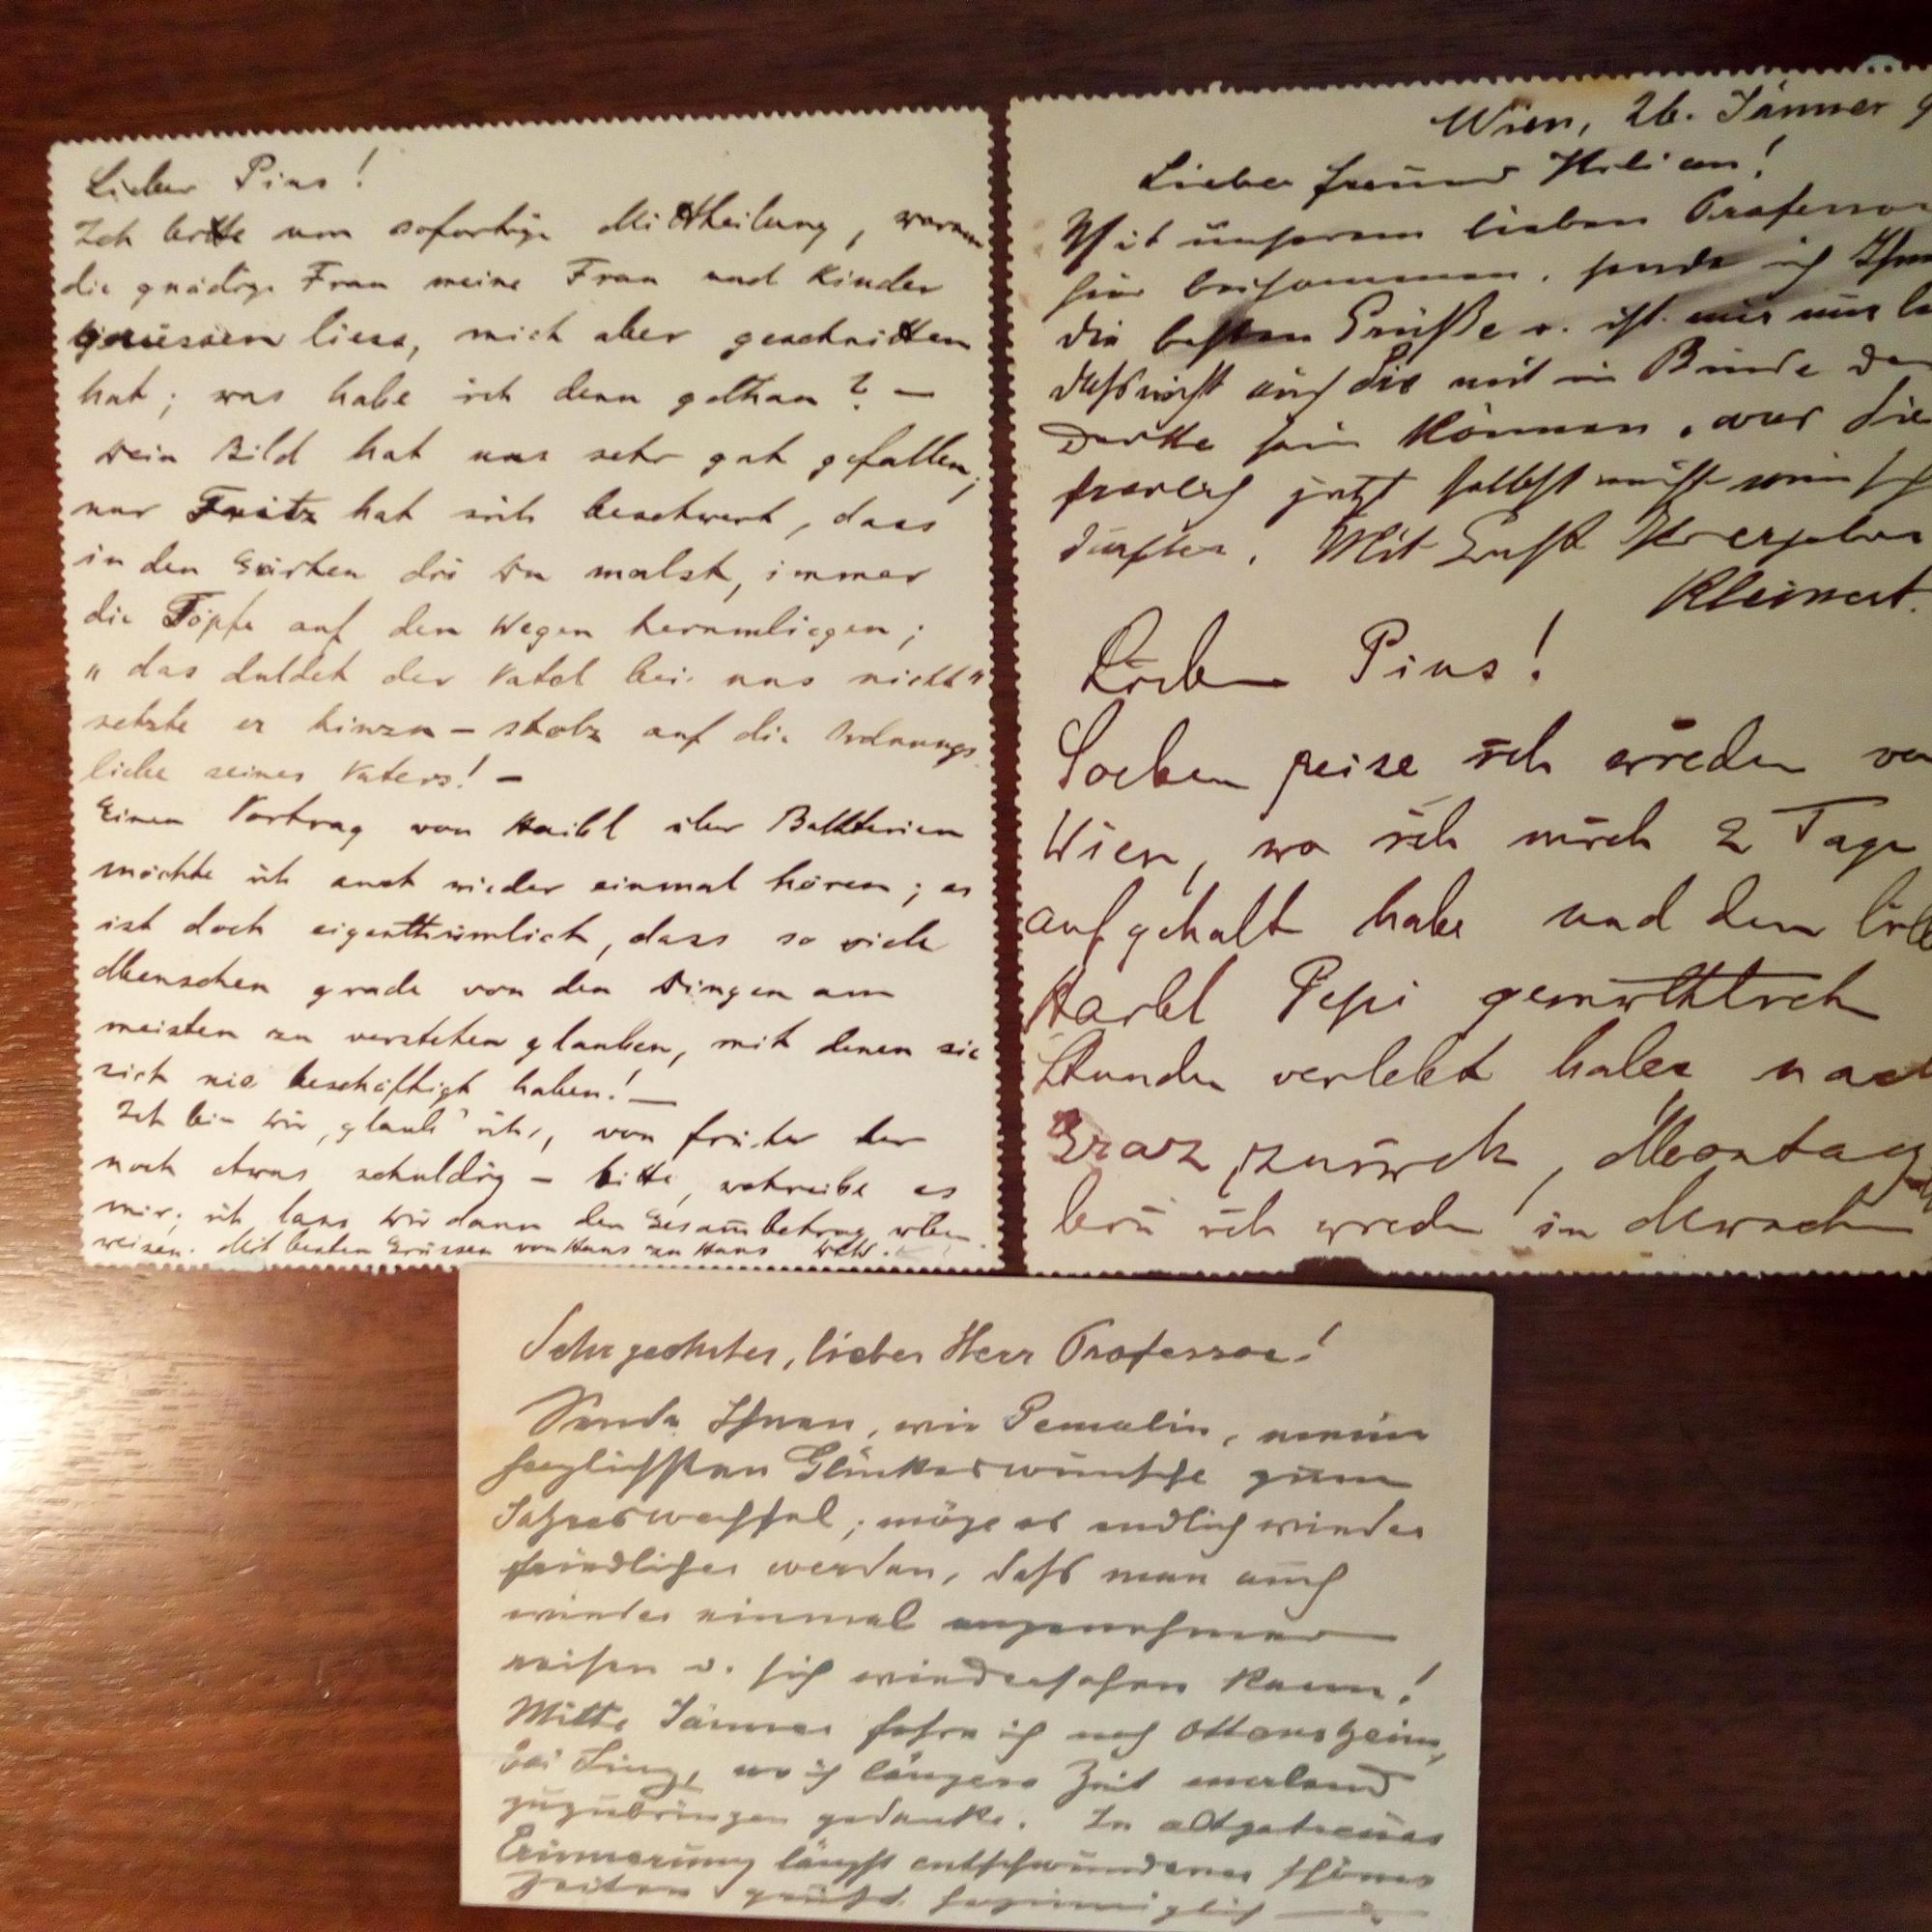 Lieber Pius!
Ich bitte um sofortige Mittheilung, warum
die gnädige Frau meine Frau und Kinder
grüssen liess, mich aber geschnitten
hat; was habe ich denn gethan? —
Dein Bild hat uns sehr gut gefallen;
nur Fritz hat sich beschwert, dass
in den Gärten die Du malst, immer
die Töpfe auf den Wegen herumliegen;
"das duldet der Vatel bei uns nicht"
setzte er hinzu — stolz auf die Ordnungs
liebe seines Vaters! —
Einen Vortrag von Haibl über Bakterien
möchte ich auch wieder einmal hören; es
ist doch eigenthümlich, dass so viele
Menschen grade von den Dingen am
meisten zu verstehen glauben, mit denen sie
sich nie beschäftigt haben! —
Ich bin Dir, glaub' ich, von früher her
noch etwas schuldig — bitte, schreibe es
mir; ich lass Dir dann den Gesammtbetrag über
weisen. Mit besten Grüssen von Haus zu Haus
Wien, 26. Jänner 9
Lieber Freund Kilian!
Mit unserem lieben Professor
hier beisammen, sende ich Ihnen
die besten Grüße u. ist mir nur
daß nicht auch Sie mit im Bunde der
Dritte sein können, was Sie
freilich jetzt selbst nicht
dürften. Mit Gruß Ihr ergebner
Kleinert.
Lieber Pius!
Soeben reise ich wieder von
Wien, wo ich mich 2 Tage
aufgehalt habe und dem
Harbl Pepi gemüthlich
Stunden verlebt habe nach
Graz zurück, Montag
bin ich wieder in
Sehr geehrter, lieber Herr Professor!
Sende Ihnen, wie Gemalin, meine
herzlichsten Glückwünsche zum
Jahreswechsel; möge es endlich wieder
friedlicher werden, daß man auch
wieder einmal angenehmer
reisen u. sich wiedersehen kann!
Mitte Jänner fahre ich nach Ottensheim,
bei Linz, wo ich längere Zeit
zuzubringen gedenke. In altgetreuer
Erinnerung längst entschwundener schöner
Zeiten grüßt herzinniglich